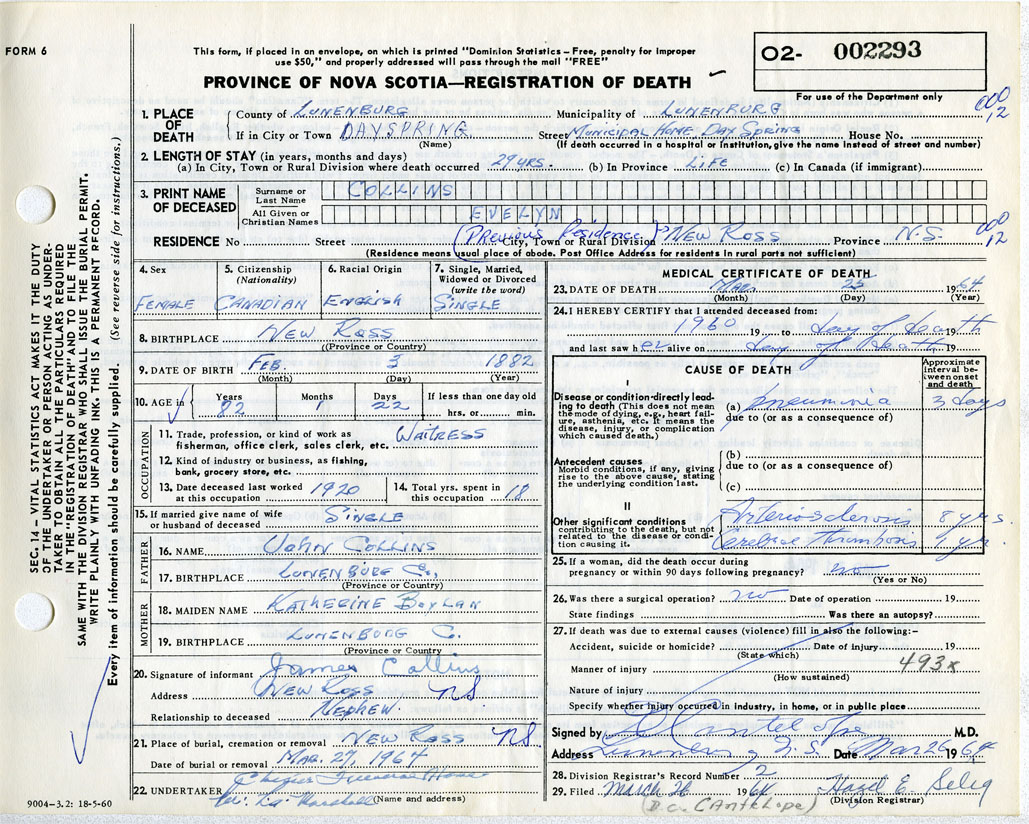 FORM 6
This form, if placed in an envelope, on which is printed "Dominion Statistics – Free, penalty for improper
use $50," and properly addressed will pass through the mail "FREE"
PROVINCE OF NOVA SCOTIA—REGISTRATION OF DEATH
O2- 002293
For use of the Department only
SEC. 14 – VITAL STATISTICS ACT MAKES IT THE DUTY
OF THE UNDERTAKER OR PERSON ACTING AS UNDER-
TAKER TO OBTAIN ALL THE PARTICULARS REQUIRED
IN THE "REGISTRATION OF DEATH" AND TO FILE THE
SAME WITH THE DIVISION REGISTRAR WHO SHALL ISSUE THE BURIAL PERMIT.
WRITE PLAINLY WITH UNFADING INK. THIS IS A PERMANENT RECORD.
Every item of information should be carefully supplied. (See reverse side for instructions.)
1. PLACE OF DEATH
County of LUNENBURG Municipality of LUNENBURG
000 12
If in City or Town DAYSPRING Street MUNICIPAL HOME DAY SPRING House No.
(Name) (If death occurred in a hospital or institution, give the name instead of street and number)
2. LENGTH OF STAY (in years, months and days)
(a) In City, Town or Rural Division where death occurred 29 YRS. (b) In Province LIFE (c) In Canada (if immigrant)
3. PRINT NAME OF DECEASED
Surname or Last Name COLLINS
All Given or Christian Names EVELYN
RESIDENCE No Street (PREVIOUS RESIDENCE) City, Town or Rural Division NEW ROSS Province N.S.
000 12
(Residence means usual place of abode. Post Office Address for residents in rural parts not sufficient)
4. Sex
FEMALE
5. Citizenship (Nationality)
CANADIAN
6. Racial Origin
ENGLISH
7. Single, Married, Widowed or Divorced (write the word)
SINGLE
8. BIRTHPLACE NEW ROSS
(Province or Country)
9. DATE OF BIRTH FEB. 3 1882
(Month) (Day) (Year)
10. AGE in Years Months Days If less than one day old
82 1 22 hrs. or min.
OCCUPATION
11. Trade, profession, or kind of work as WAITRESS
fisherman, office clerk, sales clerk, etc.
12. Kind of industry or business, as fishing,
bank, grocery store, etc.
13. Date deceased last worked at this occupation 1920
14. Total yrs. spent in this occupation 18
15. If married give name of wife or husband of deceased SINGLE
FATHER
16. NAME JOHN COLLINS
17. BIRTHPLACE LUNENBURG CO.,
(Province or Country)
MOTHER
18. MAIDEN NAME KATHERINE BOYLAN
19. BIRTHPLACE LUNENBURG C.
(Province or Country
20. Signature of informant James Collins
Address NEW ROSS NS
Relationship to deceased NEPHEW.
21. Place of burial, cremation or removal NEW ROSS NS.
Date of burial or removal MAR. 27, 1964
22. UNDERTAKER Funeral Home
(Name and address)
9004–3.2: 18-5-60
MEDICAL CERTIFICATE OF DEATH
23. DATE OF DEATH MAR. 25 1964
(Month) (Day) (Year)
24. I HEREBY CERTIFY that I attended deceased from:
1960 19 to day of death 19
and last saw her alive on day of death 19
CAUSE OF DEATH
Approximate interval between onset and death
I
Disease or condition directly lead-
ing to death (This does not mean
the mode of dying, e.g., heart fail-
ure, asthenia, etc. It means the
disease, injury, or complication
which caused death.)
(a) pneumonia 3 days
due to (or as a consequence of)
Antecedent causes
Morbid conditions, if any, giving
rise to the above cause, stating
the underlying condition last.
(b)
due to (or as a consequence of)
(c)
II
Other significant conditions
contributing to the death, but not
related to the disease or condi-
tion causing it.
Arteriosclerosis 8 yrs.
Cerebral thrombosis 1 yr
25. If a woman, did the death occur during
pregnancy or within 90 days following pregnancy? no
(Yes or No)
26. Was there a surgical operation? no Date of operation 19
State findings Was there an autopsy?
27. If death was due to external causes (violence) fill in also the following:–
Accident, suicide or homicide? Date of injury 19
(State which)
493x
Manner of injury
(How sustained)
Nature of injury
Specify whether injury occurred in industry, in home, or in public place
Signed by M.D.
Address Lunenburg N.S. Date Mar 26 1964
28. Division Registrar's Record Number 2
29. Filed March 26 1964 Hazel E. Selig
(D.C. CANTELOPE) (Division Registrar)